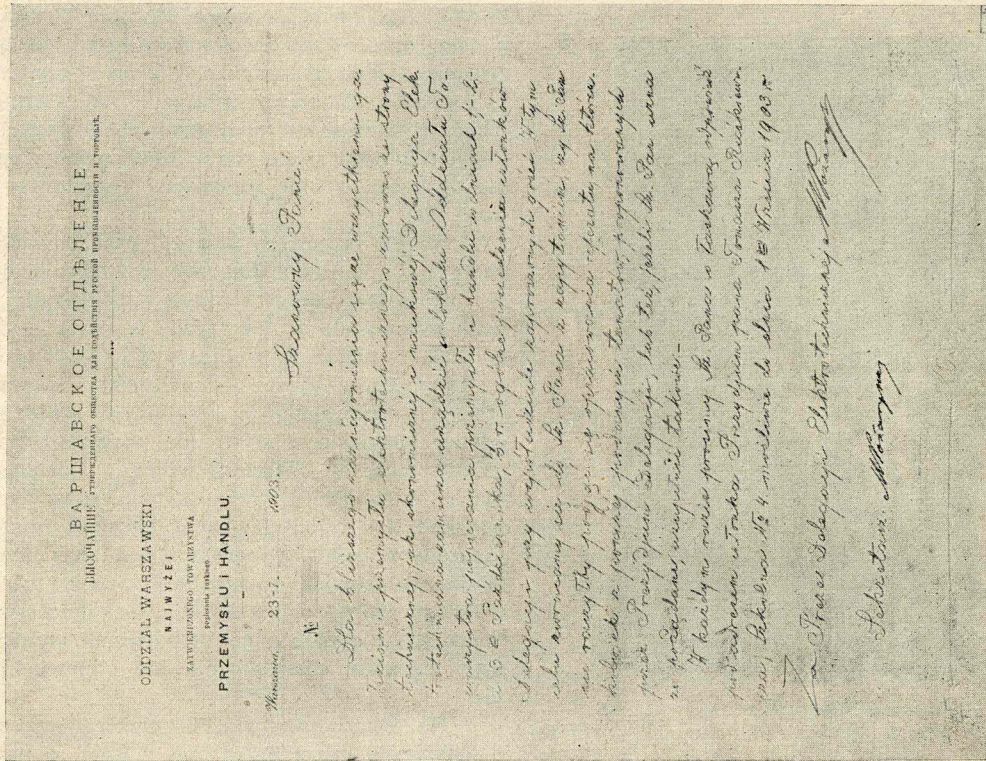 ВАРШАВСКОЕ ОТДѢЛЕНІЕ
ВЫСОЧАЙШЕ УТВЕРЖДЕННАГО ОБЩЕСТВА ДЛЯ СОДѢЙСТВІЯ РУССКОЙ ПРОМЫШЛЕННОСТИ И ТОРГОВЛѢ.
ODDZIAŁ WARSZAWSKI
NAJWYŻEJ
ZATWIERDZONEGO TOWARZYSTWA
popierania ruskiego
PRZEMYSŁU i HANDLU.
Warszawa, 23-I. 1903 r.
№
Szanowny Panie!
Dla bliższego zaznajomienia się ze wszystkiemi ga-
łęziami przemysłu elektrotechnicznego zarówno ze strony
technicznej, jak ekonomicznej i naukowej, Delegacya Elek-
trotechniczna zamierza urządzić w lokalu Oddziału To-
warzystwa popierania przemysłu i handlu w dniach 1-ty,
2 i 3 Października, b. r. ogólne posiedzenia członków
Delegacyi przy współudziale zaproszonych gości. W tym
celu zwracamy się do Sz. Pana z zapytaniem, czy Sz. Pan
nie raczyłby podjąć się opracowania referatu na który-
kolwiek z poniżej podanych tematów, proponowanych
przez Prezydjum Delegacyi, lub też, jeżeli Sz. Pan uzna
za pożądane, wszystkich takowe.—
W każdym razie prosimy Sz. Pana o łaskawą odpowiedź
pod adresem członka Prezydjum pana Tomasza Ruśkiewi-
cza, Szkolna № 4 możliwie do dnia 1 Września 1903 r.
Za Prezes Delegacyi Elektrotechnicznej
Sekretarz